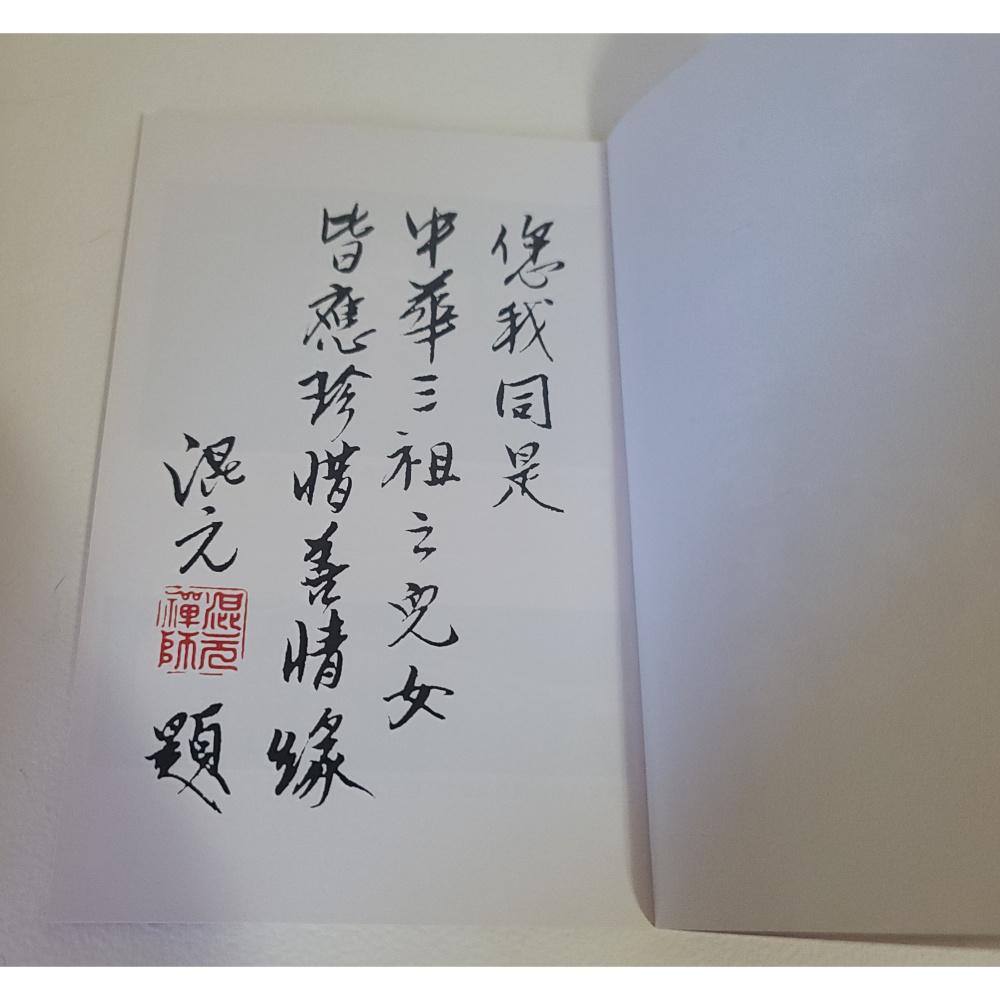 您我同是
中華三祖之兒女
皆應珍惜善情緣
混元
混元
禪師
題